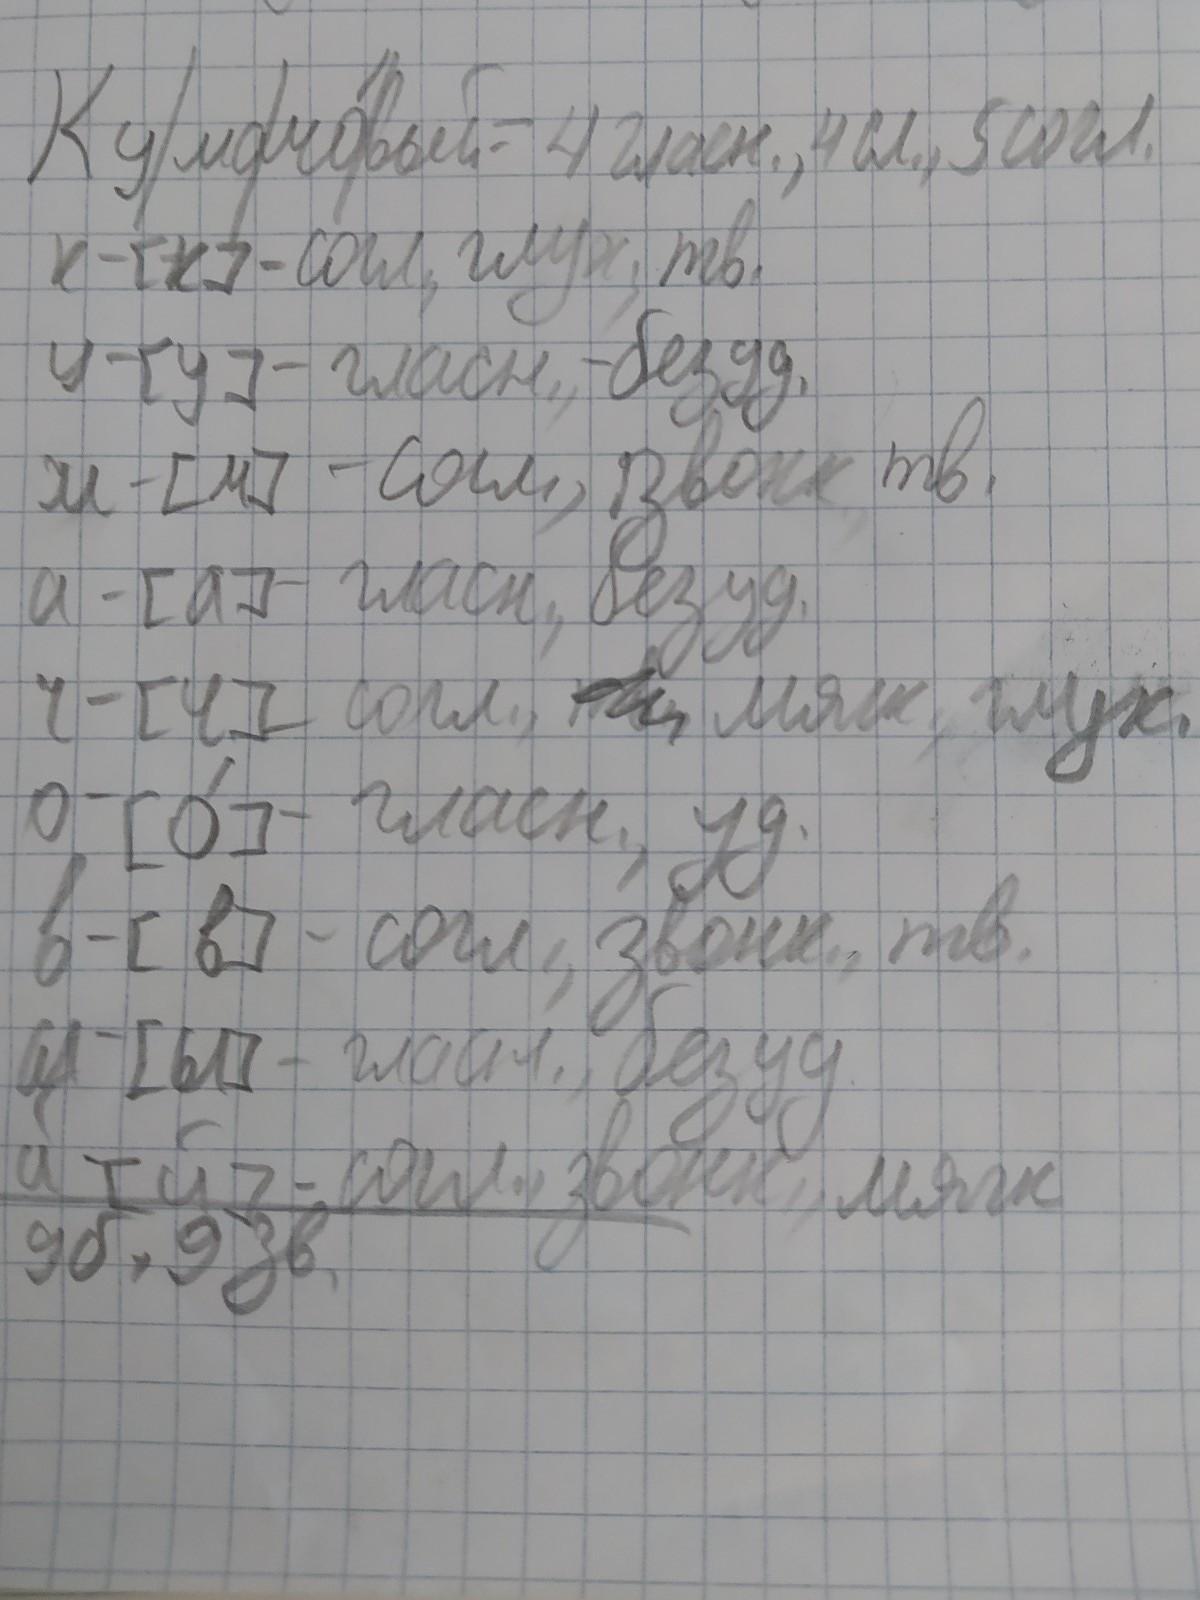 Ку/ма/чо́/вый - 4 гласн., 4 сл., 5 согл.
к - [к] - согл, глух, тв.
у - [у] - гласн., - безуд.
м - [м] - согл., звонк, тв.
а - [а] - гласн., безуд.
ч - [ч] согл., мягк, глух.
о - [о́] - гласн., уд.
в - [в] - согл., звонк., тв.
ы - [ы] - гласн., безуд.
й - [й] - согл., звонк., мягк
9б, 9 зв.